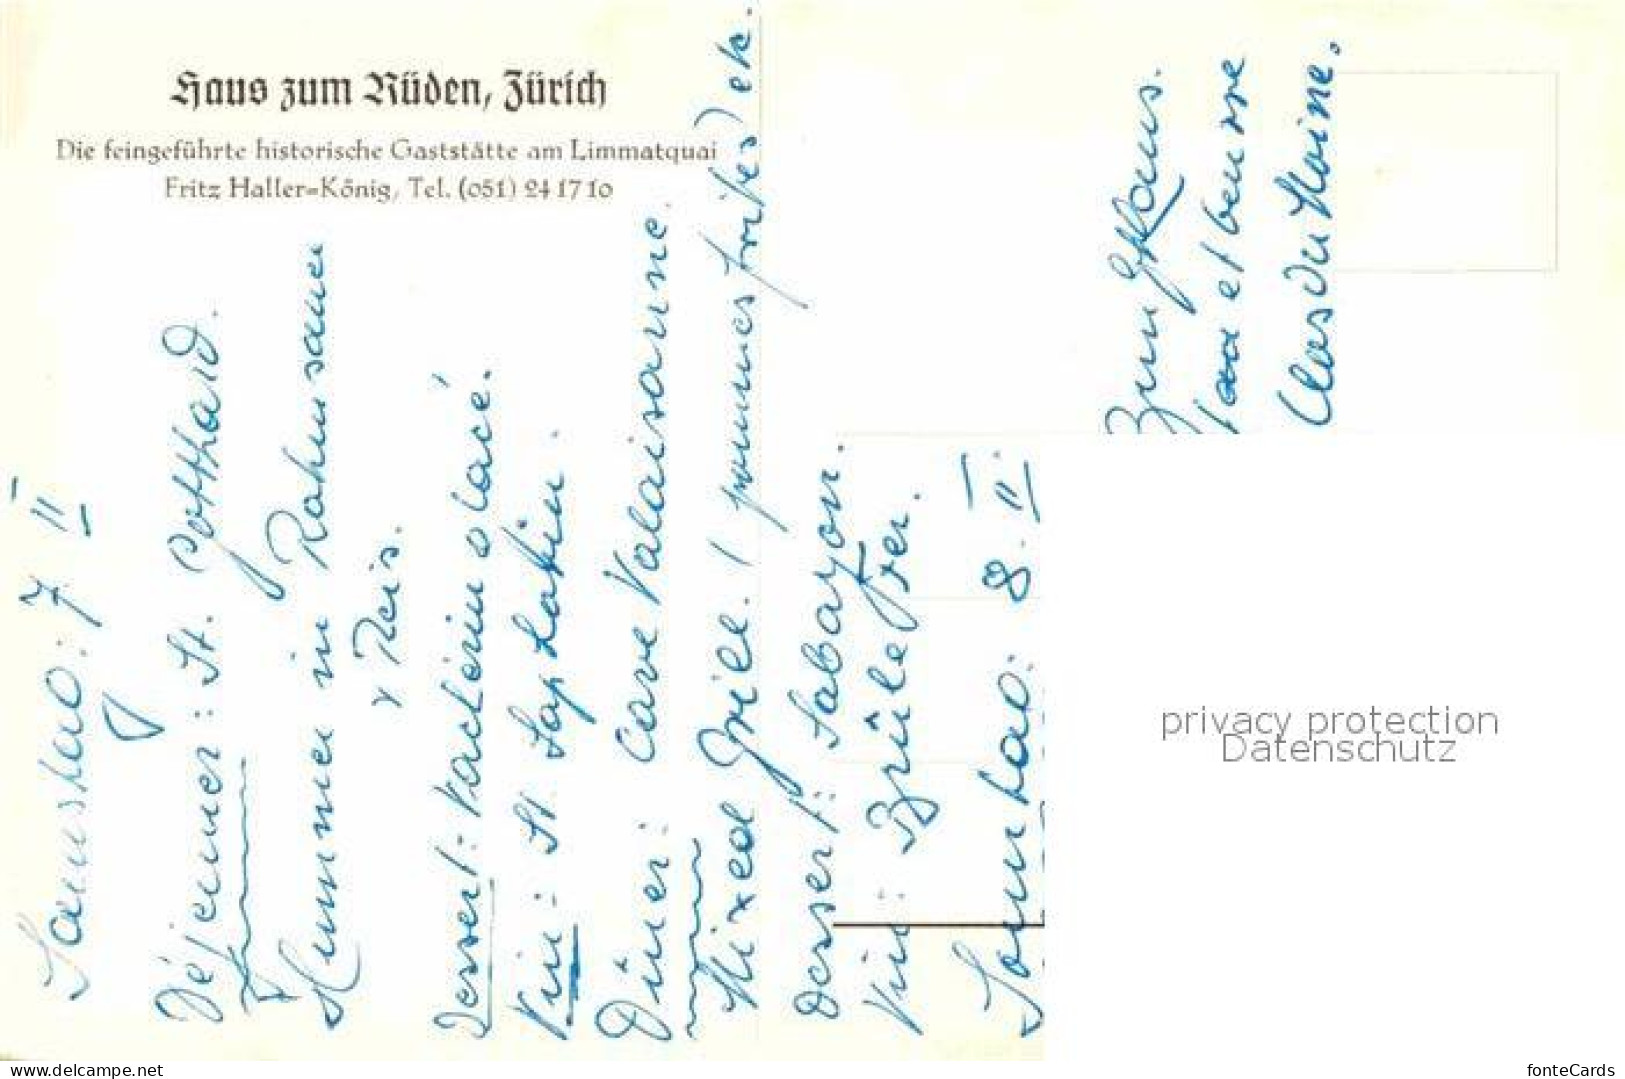 Haus zum Rüden, Zürich
Die feingeführte historische Gaststätte am Limmatquai
Fritz Haller=König, Tel. (051) 24 17 10
Samstag: 7 II
Déjeuner: St. Gotthard.
Hummer in Rahmsauce
& Reis.
Dessert: Vacherin glacé.
Vin: St. Saphorin.
Dîner: Cave Valaisanne.
Mixed Grill. (pommes frites) etc.
Dessert: Sabayon.
Vin: Brûlefer.
Sonntag: 8. II.
privacy protection
Datenschutz
www.delcampe.net
fonteCards